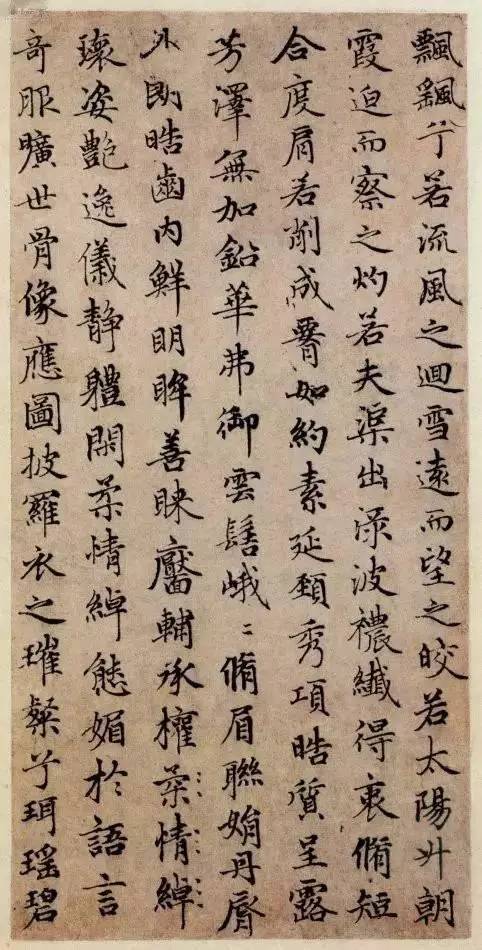 飄飖兮若流風之迴雪遠而望之皎若太陽升朝
霞迫而察之灼若夫渠出淥波襛纖得衷脩短
合度肩若削成署如約素延頸秀項晧質呈露
芳澤無加鉛華弗御雲髻峨〻脩眉聯娟丹脣
外朗晧齒内鮮明眸善睞靨輔承權柔情綽
瓌姿艷逸儀靜軆閑柔情綽態媚於語言
奇服曠世骨像應圖披羅衣之璀粲兮珥瑶碧